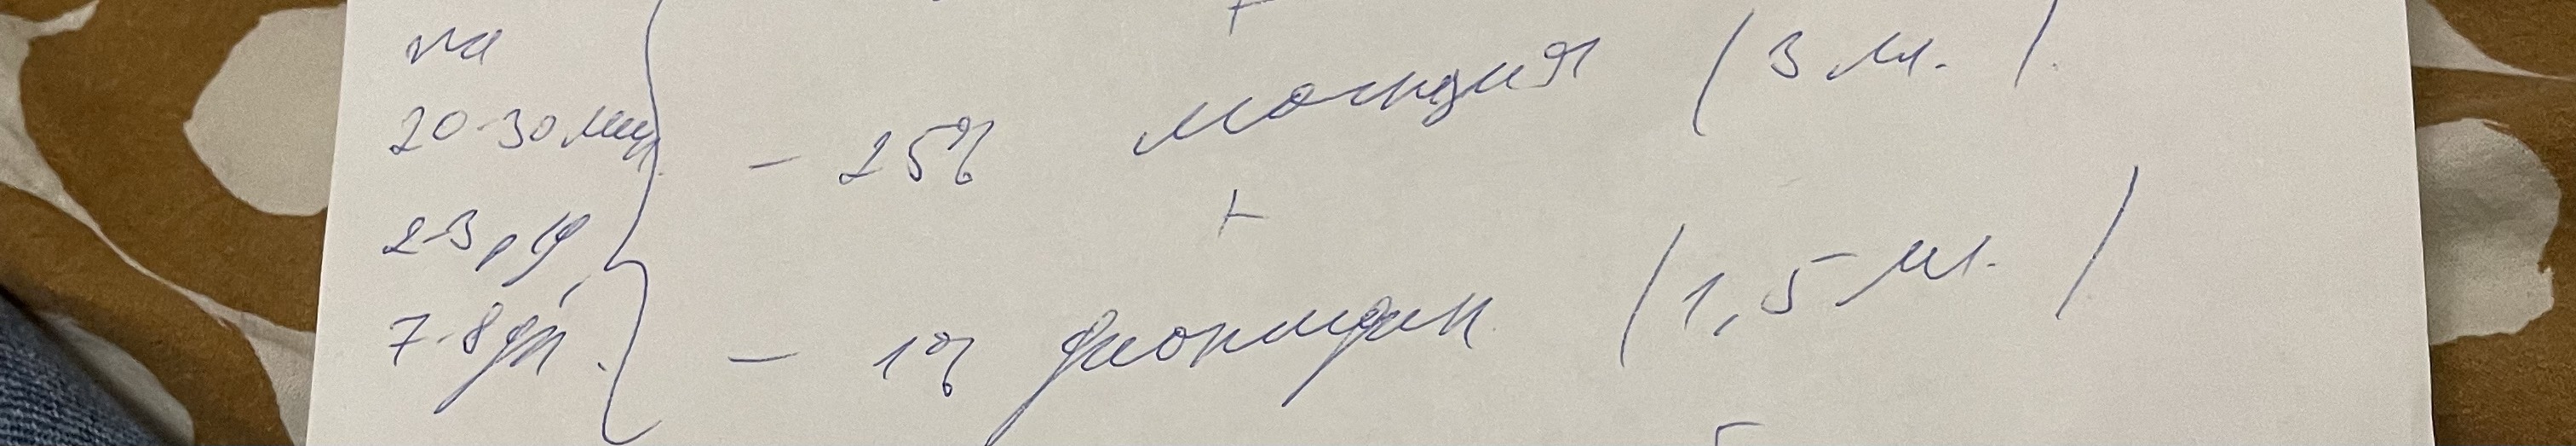 на
20-30 мин
2-3 р/д,
7-8 дн.
- 25% магнезия (3 мл.).
+
- 1% диоксидин (1,5 мл.)